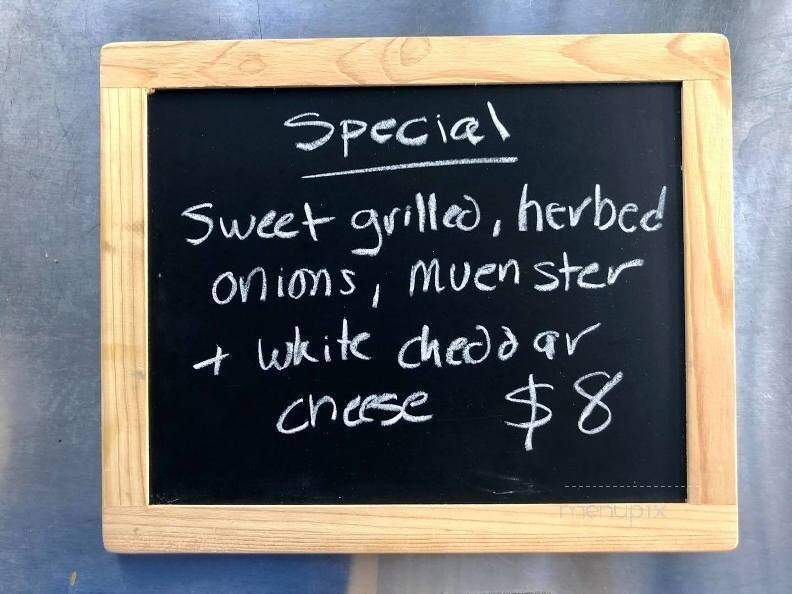 Special
Sweet grilled, herbed
onions, muenster
+ white cheddar
cheese $8
menupix